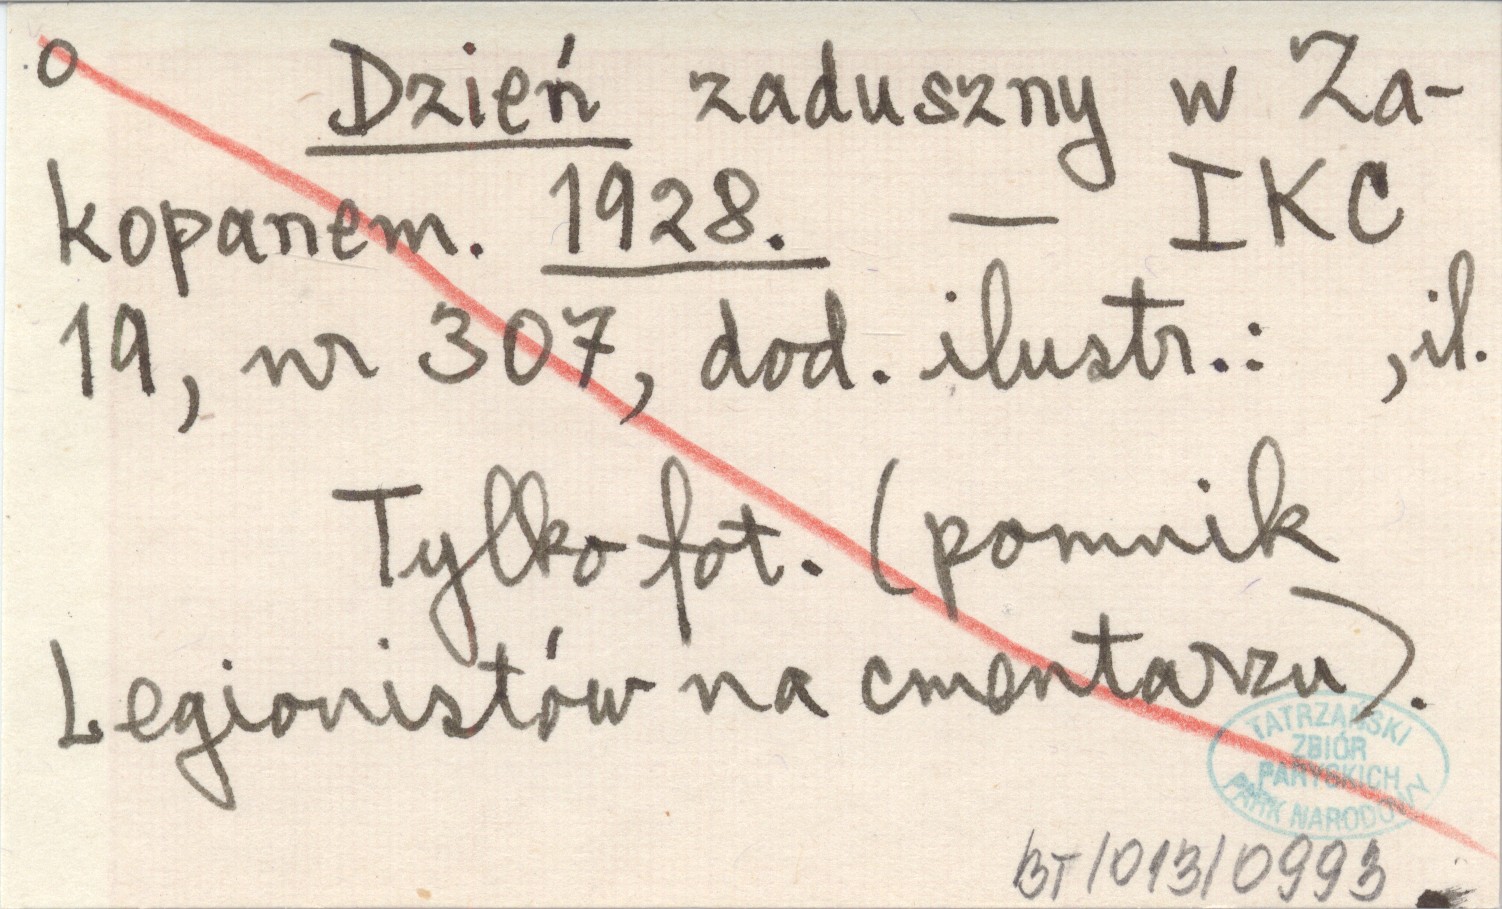 o Dzień zaduszny w Za-
kopanem. 1928. — IKC
19, nr 307, dod. ilustr.: , il.
Tylko fot. (pomnik
Legionistów na cmentarzu).
TATRZAŃSKI
ZBIÓR
PARYSKICH
PARK NARODOWY
BT/013/0993